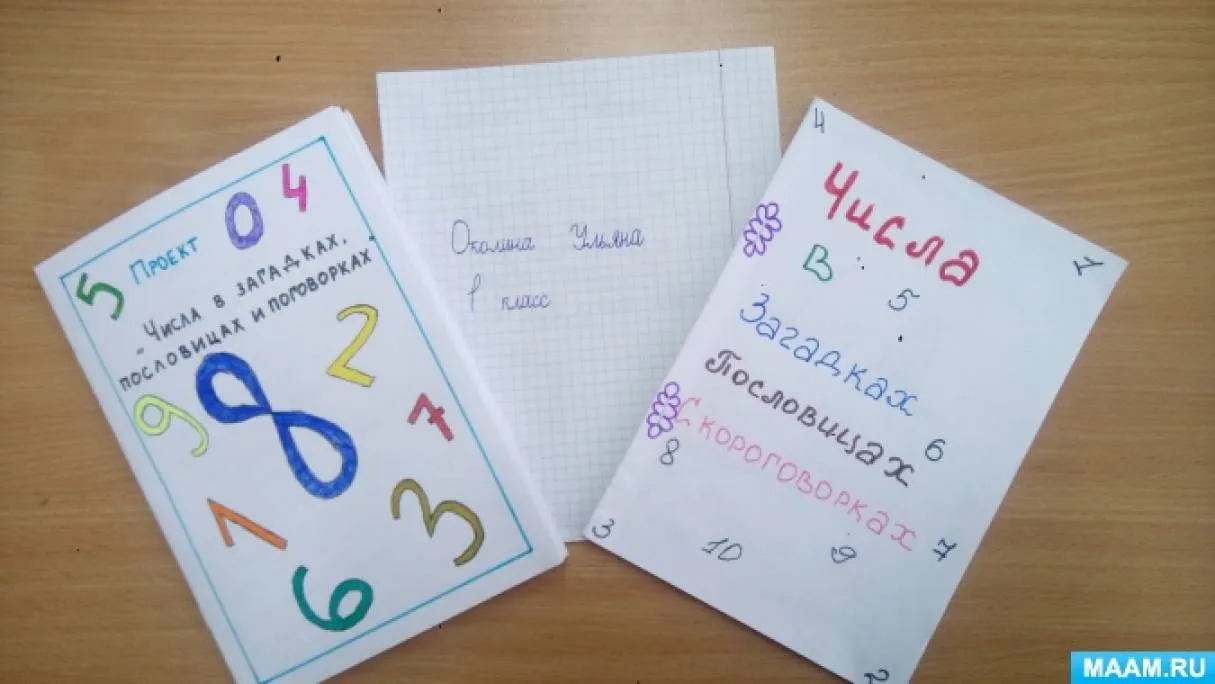 5 0 4
Проект
Числа в загадках,
пословицах и поговорках
9 8 2
7
1 3
6
Околина Ульяна
1 класс
4
Числа
1
В
5
Загадках
Пословицах
Скороговорках
6
8
3
10
9
7
2
MAAM.RU